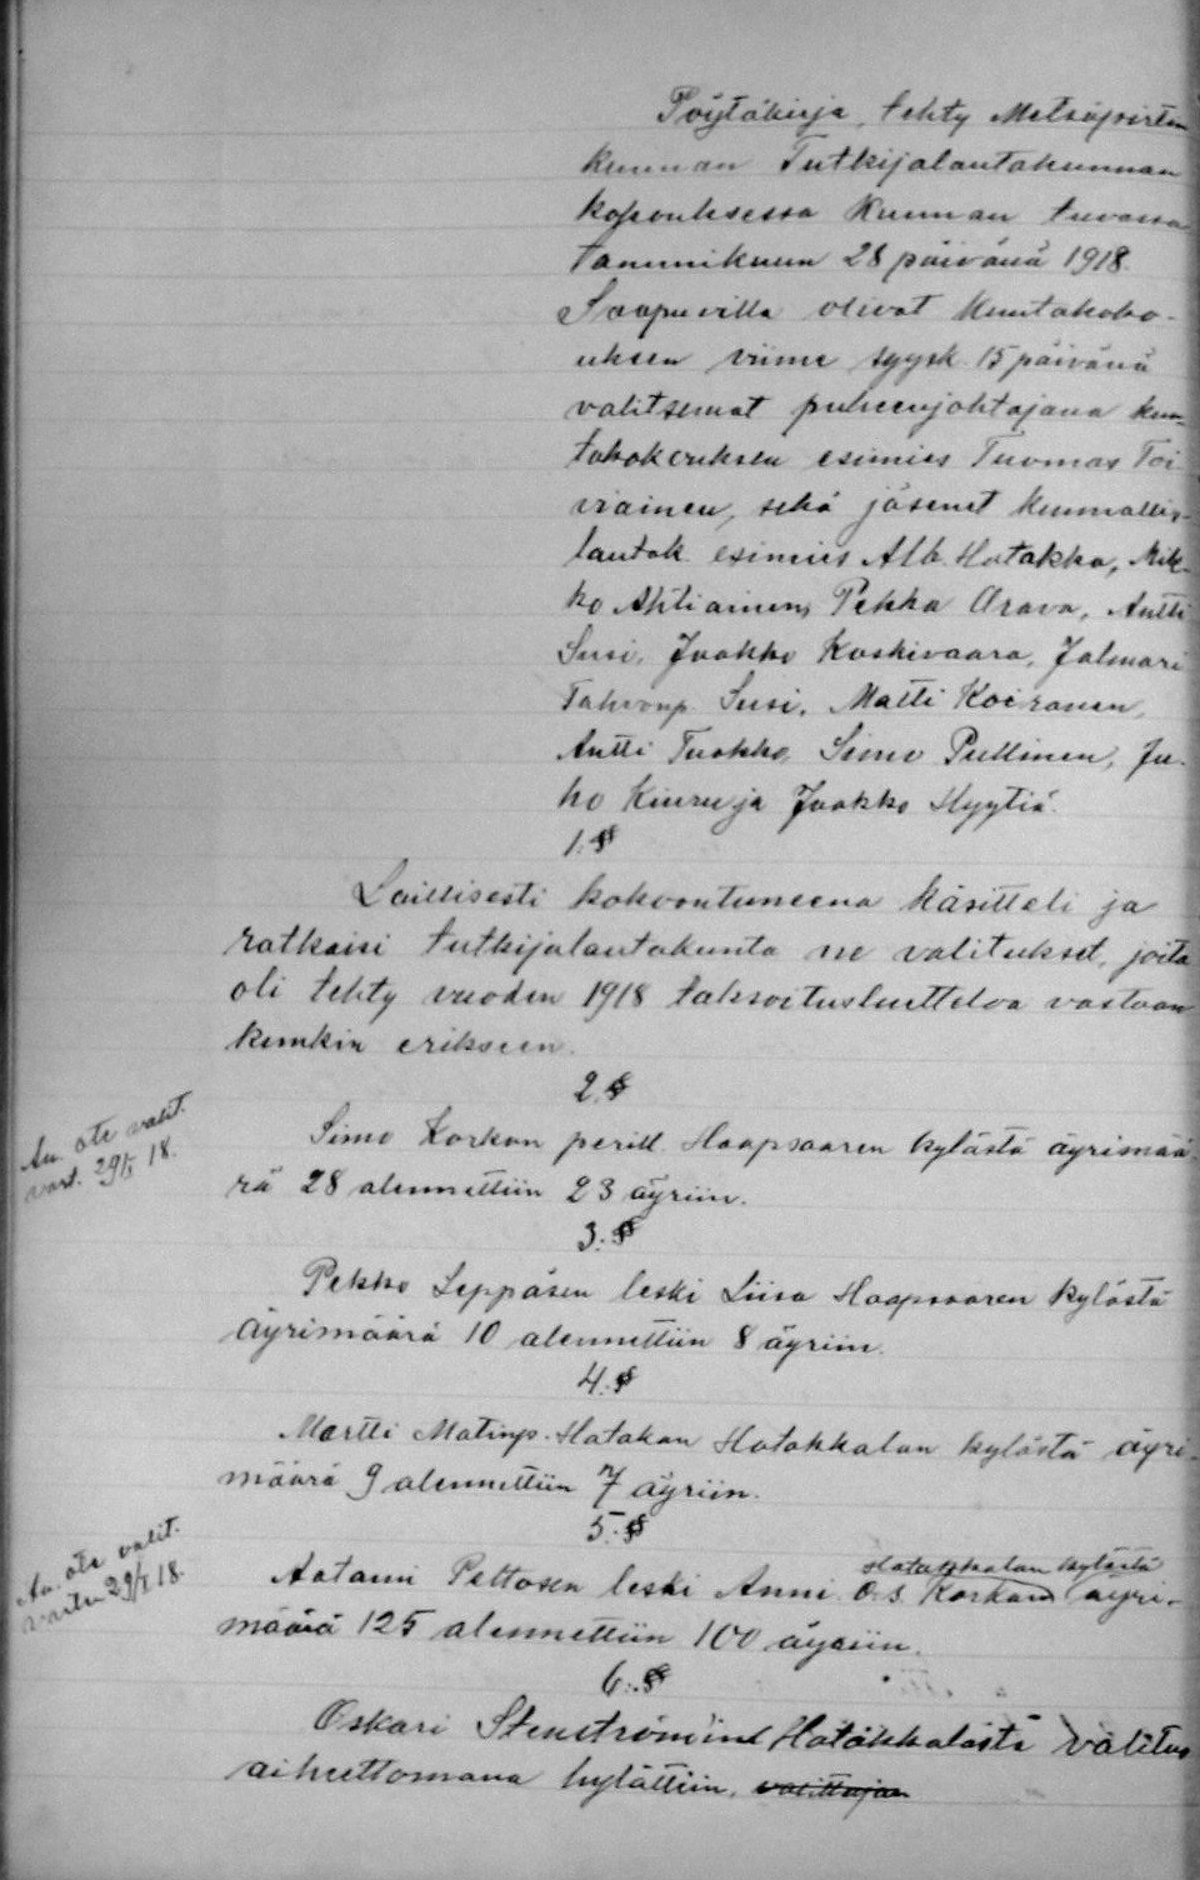 Pöytäkirja, tehty Metsäpirtin
kunnan Tutkijalautakunnan
kokouksessa Kunnan tuvassa
tammikuun 28 päivänä 1918.
Saapuvilla olivat Kuntakoko-
uksen viime syysk. 15 päivänä
valitsemat puheenjohtajana kun-
takokouksen esimies Tuomas Toi
viainen, sekä jäsenet kunnallis-
lautak. esimies Alb. Hatakka, Mik-
ko Ahtiainen, Pekka Orava, Antti
Susi, Jaakko Koskivaara, Jalmari
Tahvonp. Susi, Matti Koiranen,
Antti Tuokko, Simo Pullinen, Ju-
ho Kiuru ja Jaakko Hyytiä.
1.§
Laillisesti kokoontuneena käsitteli ja
ratkaisi tutkijalautakunta ne valitukset, joita
oli tehty vuoden 1918 taksoitusluetteloa vastaan
kunkin erikseen.
2.§
An. ote valit.
vart. 29/I 18.
Simo Korkan perill. Haapsaaren kylästä äyrimää-
rä 28 alennettiin 23 äyriin.
3.§
Pekko Leppäsen leski Liisa Haapsaaren kylästä
äyrimäärä 10 alennettiin 8 äyriin.
4.§
Martti Matinp. Hatakan Hatakkalan kylästä äyri-
määrä 9 alennettiin 7 äyriin.
5.§
An. ote valit.
varten 29/I 18.
Hatakkalan kylästä
Aatami Peltosen leski Anni O.s. Korkan äyri-
määrä 125 alennettiin 100 äyriin.
6.§
Oskari Stenströmin Hatakkalasta valitus
aiheettomana hylättiin. valittajan